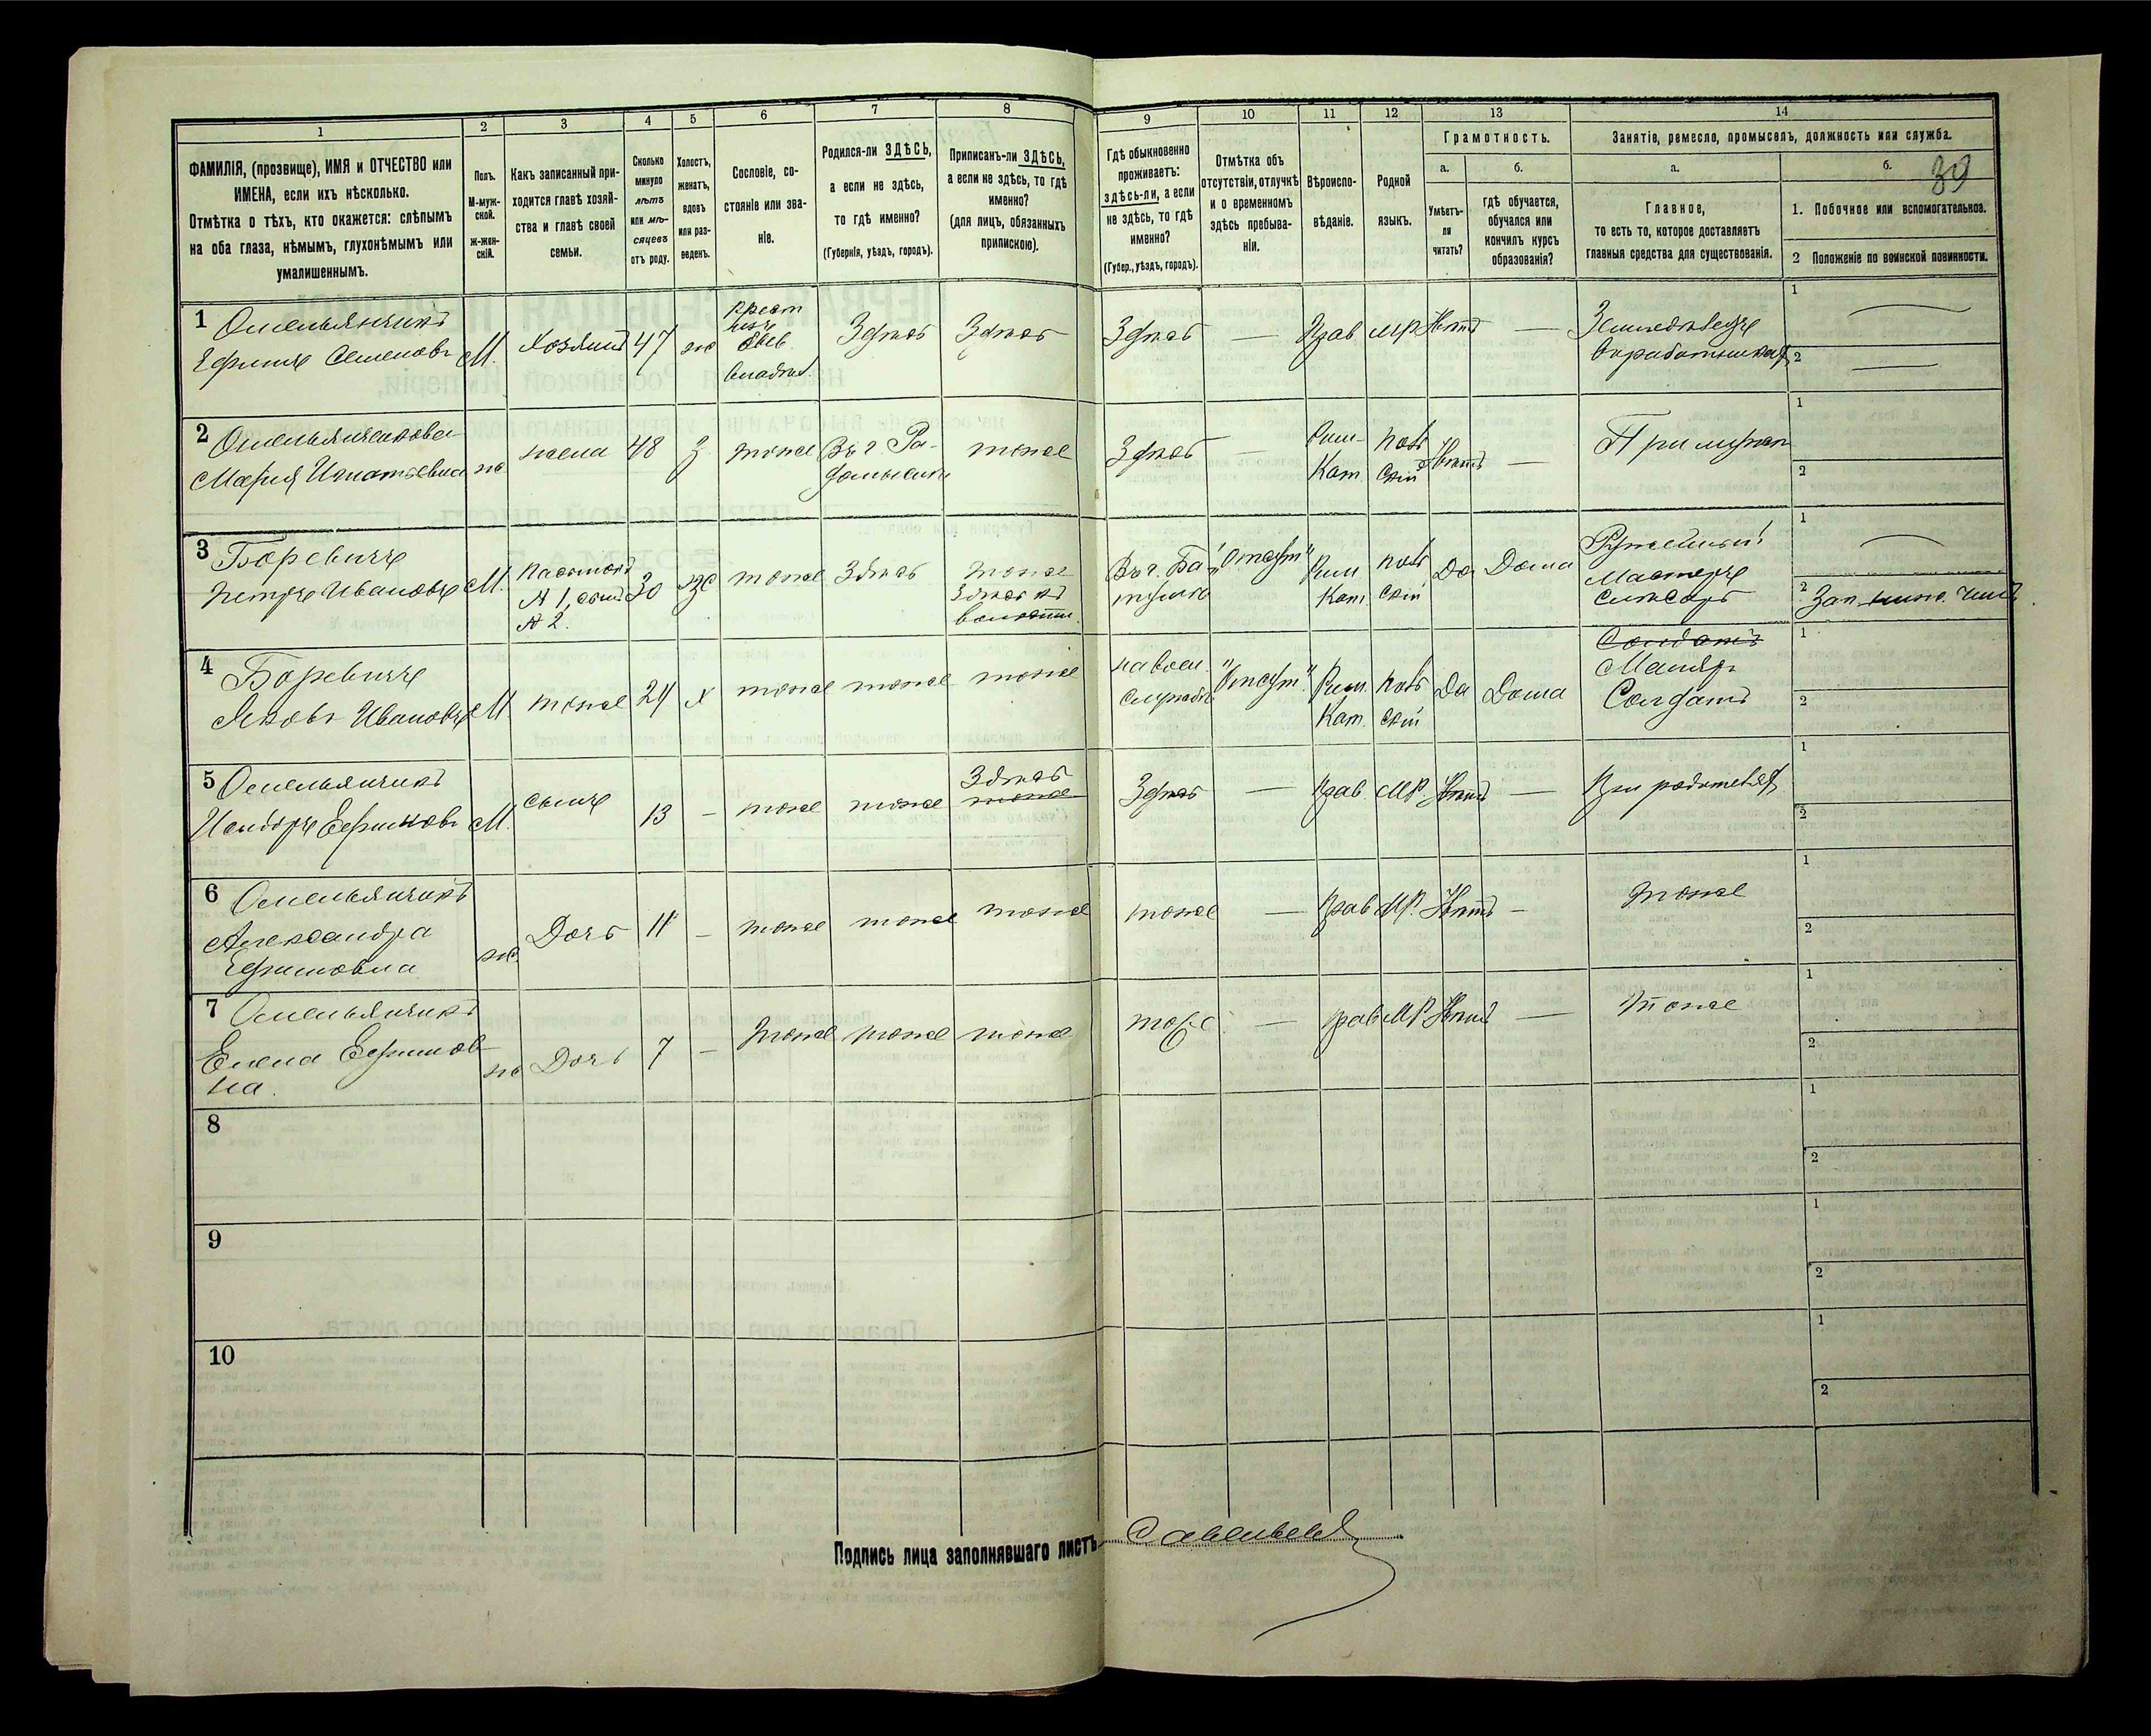 1
2
3
4
5
6
7
8
ФАМИЛІЯ, (прозвище), ИМЯ и ОТЧЕСТВО или
ИМЕНА, если ихъ нѣсколько.
Отмѣтка о тѣхъ, кто окажется: слѣпымъ
на оба глаза, нѣмымъ, глухонѣмымъ или
умалишеннымъ.
Полъ.
М-муж-
ской.
Ж-жен-
скій.
Какъ записанный при-
ходится главѣ хозяй-
ства и главѣ своей
семьи.
Сколько
минуло
лѣтъ
или мѣ-
сяцевъ
отъ роду.
Холостъ,
женатъ,
вдовъ
или раз-
веденъ.
Сословіе, со-
стояніе или зва-
ніе.
Родился-ли ЗДѢСЬ,
а если не здѣсь,
то гдѣ именно?
(Губернія, уѣздъ, городъ).
Приписанъ-ли ЗДѢСЬ,
а если не здѣсь, то гдѣ
именно?
(для лицъ, обязанныхъ
припискою).
9
10
11
12
13
14
Гдѣ обыкновенно
проживаетъ:
здѣсь-ли, а если
не здѣсь, то гдѣ
именно?
(Губер., уѣздъ, городъ).
Отмѣтка объ
отсутствіи, отлучкѣ
и о временномъ
здѣсь пребыва-
ніи.
Вѣроиспо-
вѣданіе.
Родной
языкъ.
Грамотность.
а.
б.
Умѣетъ-
ли
читать?
гдѣ обучается,
обучался или
кончилъ курсъ
образованія?
Занятіе, ремесло, промыселъ, должность или служба.
а.
б.
39
Главное,
то есть то, которое доставляетъ
главныя средства для существованія.
1. Побочное или вспомогательное.
2 Положеніе по воинской повинности.
1 Омельянчикъ
Ефимъ Семеновъ
М.
Хозяинъ
47
ж
Крест
изъ
владѣл.
Здѣсь
Здѣсь
Здѣсь
—
Прав
МР
Нѣтъ
—
Земледѣлецъ
1
2
2
Мария Игнатьевна
ж
жена
48
З
тоже
Въ г. Ра-
домысли
тоже
Здѣсь
—
Рим-
Кат.
поль
скій
Нѣтъ
—
При мужѣ
1
2
3 Боревичъ
Петръ Ивановъ
М.
Пасынокъ
№ 1, сынъ
№ 2.
30
же
тоже
Здѣсь
тоже
Въ г. Ба
тумѣ
"Отсут"
Рим
Кат.
поль
скій
Да
Дома
Ружейный
Мастеръ
слесарь
1
2 Зап.
4 Боревичъ
Яковъ Ивановъ
М.
тоже
24
Х
тоже
тоже
тоже
на воен.
службѣ
"Отсут".
Рим.
Кат.
поль
скій
Да
Дома
Солдатъ
Маляръ
Солдатъ
1
2
5 Омельянчикъ
Исидоръ Ефимовъ
М.
сынъ
13
—
тоже
тоже
Здѣсь
тоже
Здѣсь
—
Прав.
МР.
Нѣтъ
—
При родителяхъ
1
2
6 Омельянчикъ
Александра
Ефимовна
ж.
Дочь
11
—
тоже
тоже
тоже
тоже
—
Прав
МР.
Нѣтъ
—
тоже
1
2
7 Омельянчикъ
Елена Ефимов-
на.
ж
Дочь
7
—
тоже
тоже
тоже
тоже
—
Прав
МР.
Нѣтъ
—
тоже
1
2
8
1
2
9
1
2
10
1
2
Подпись лица заполнявшаго листъ